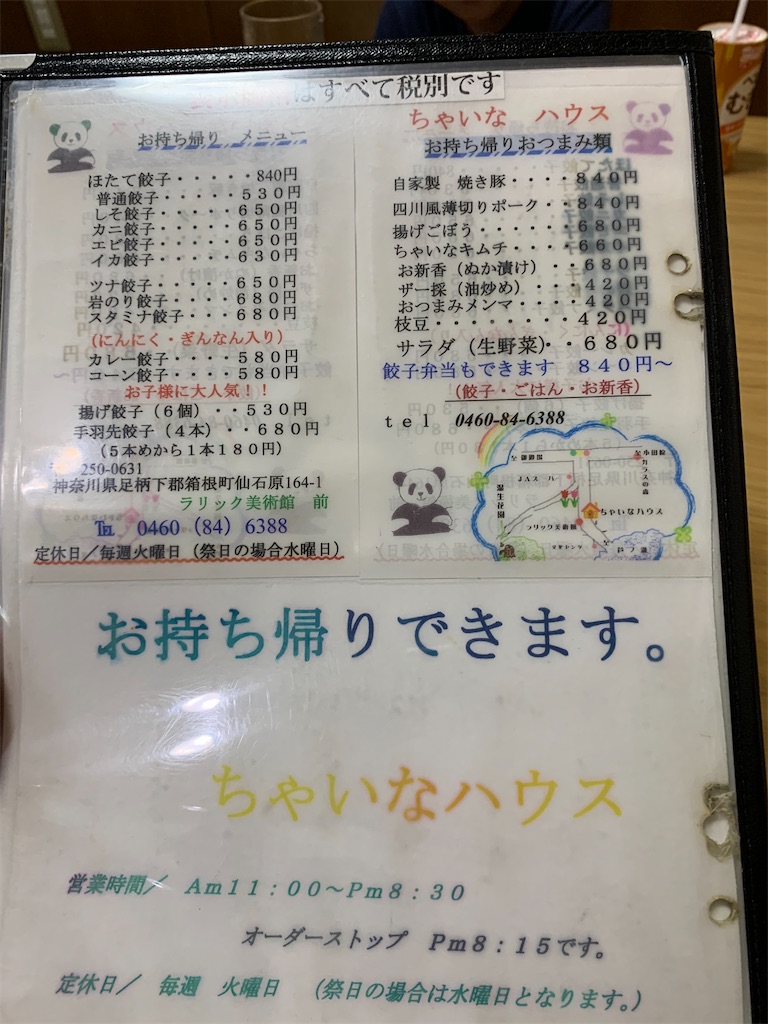 はすべて税別です
お持ち帰り メニュー
ほたて餃子・・・・・840円
普通餃子・・・・・530円
しそ餃子・・・・650円
カニ餃子・・・・650円
エビ餃子・・・・650円
イカ餃子・・・・630円
ツナ餃子・・・・・650円
岩のり餃子・・・・680円
スタミナ餃子・・・680円
(にんにく・ぎんなん入り)
カレー餃子・・・・580円
コーン餃子・・・・580円
お子様に大人気!!
揚げ餃子(6個)・・530円
手羽先餃子(4本)・・680円
(5本めから1本180円)
250-0631
神奈川県足柄下郡箱根町仙石原164-1
ラリック美術館 前
℡ 0460(84)6388
定休日/毎週火曜日(祭日の場合水曜日)
ちゃいな ハウス
お持ち帰りおつまみ類
自家製 焼き豚・・・・840円
四川風薄切りポーク・・840円
揚げごぼう・・・・・・680円
ちゃいなキムチ・・・・660円
お新香(ぬか漬け)・・680円
ザー採(油炒め)・・・・420円
おつまみメンマ・・・・420円
枝豆・・・・・・・・420円
サラダ(生野菜)・・680円
餃子弁当もできます 840円~
(餃子・ごはん・お新香)
tel 0460-84-6388
至御殿場
至小田原
JAスーパー
ガラスの森
湿生花園
ちゃいなハウス
ラリック美術館
至芦ノ湖
お持ち帰りできます。
ちゃいなハウス
営業時間/ Am11:00~Pm8:30
オーダーストップ Pm8:15です。
定休日/ 毎週 火曜日 (祭日の場合は水曜日となります。)